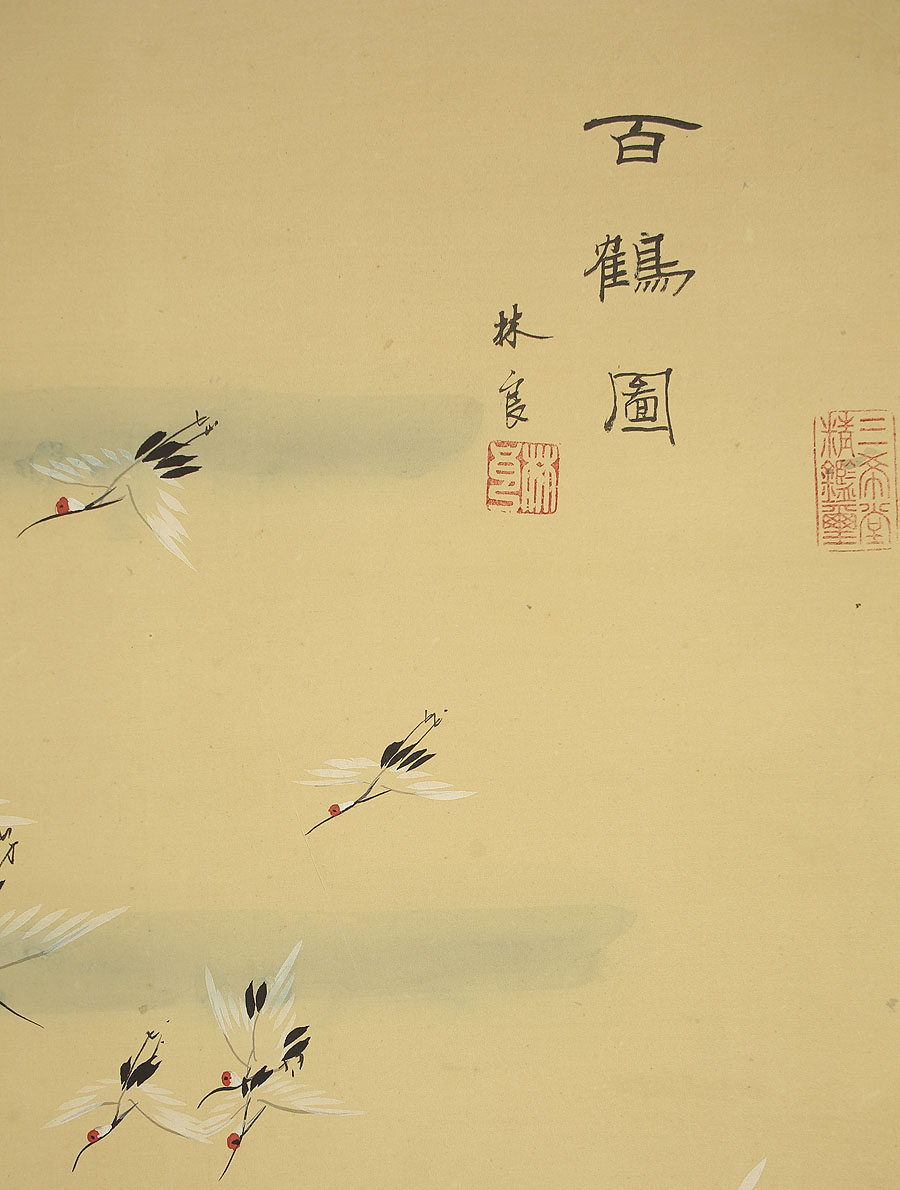 三希堂
精鑑璽
百鶴圖
林良
林良